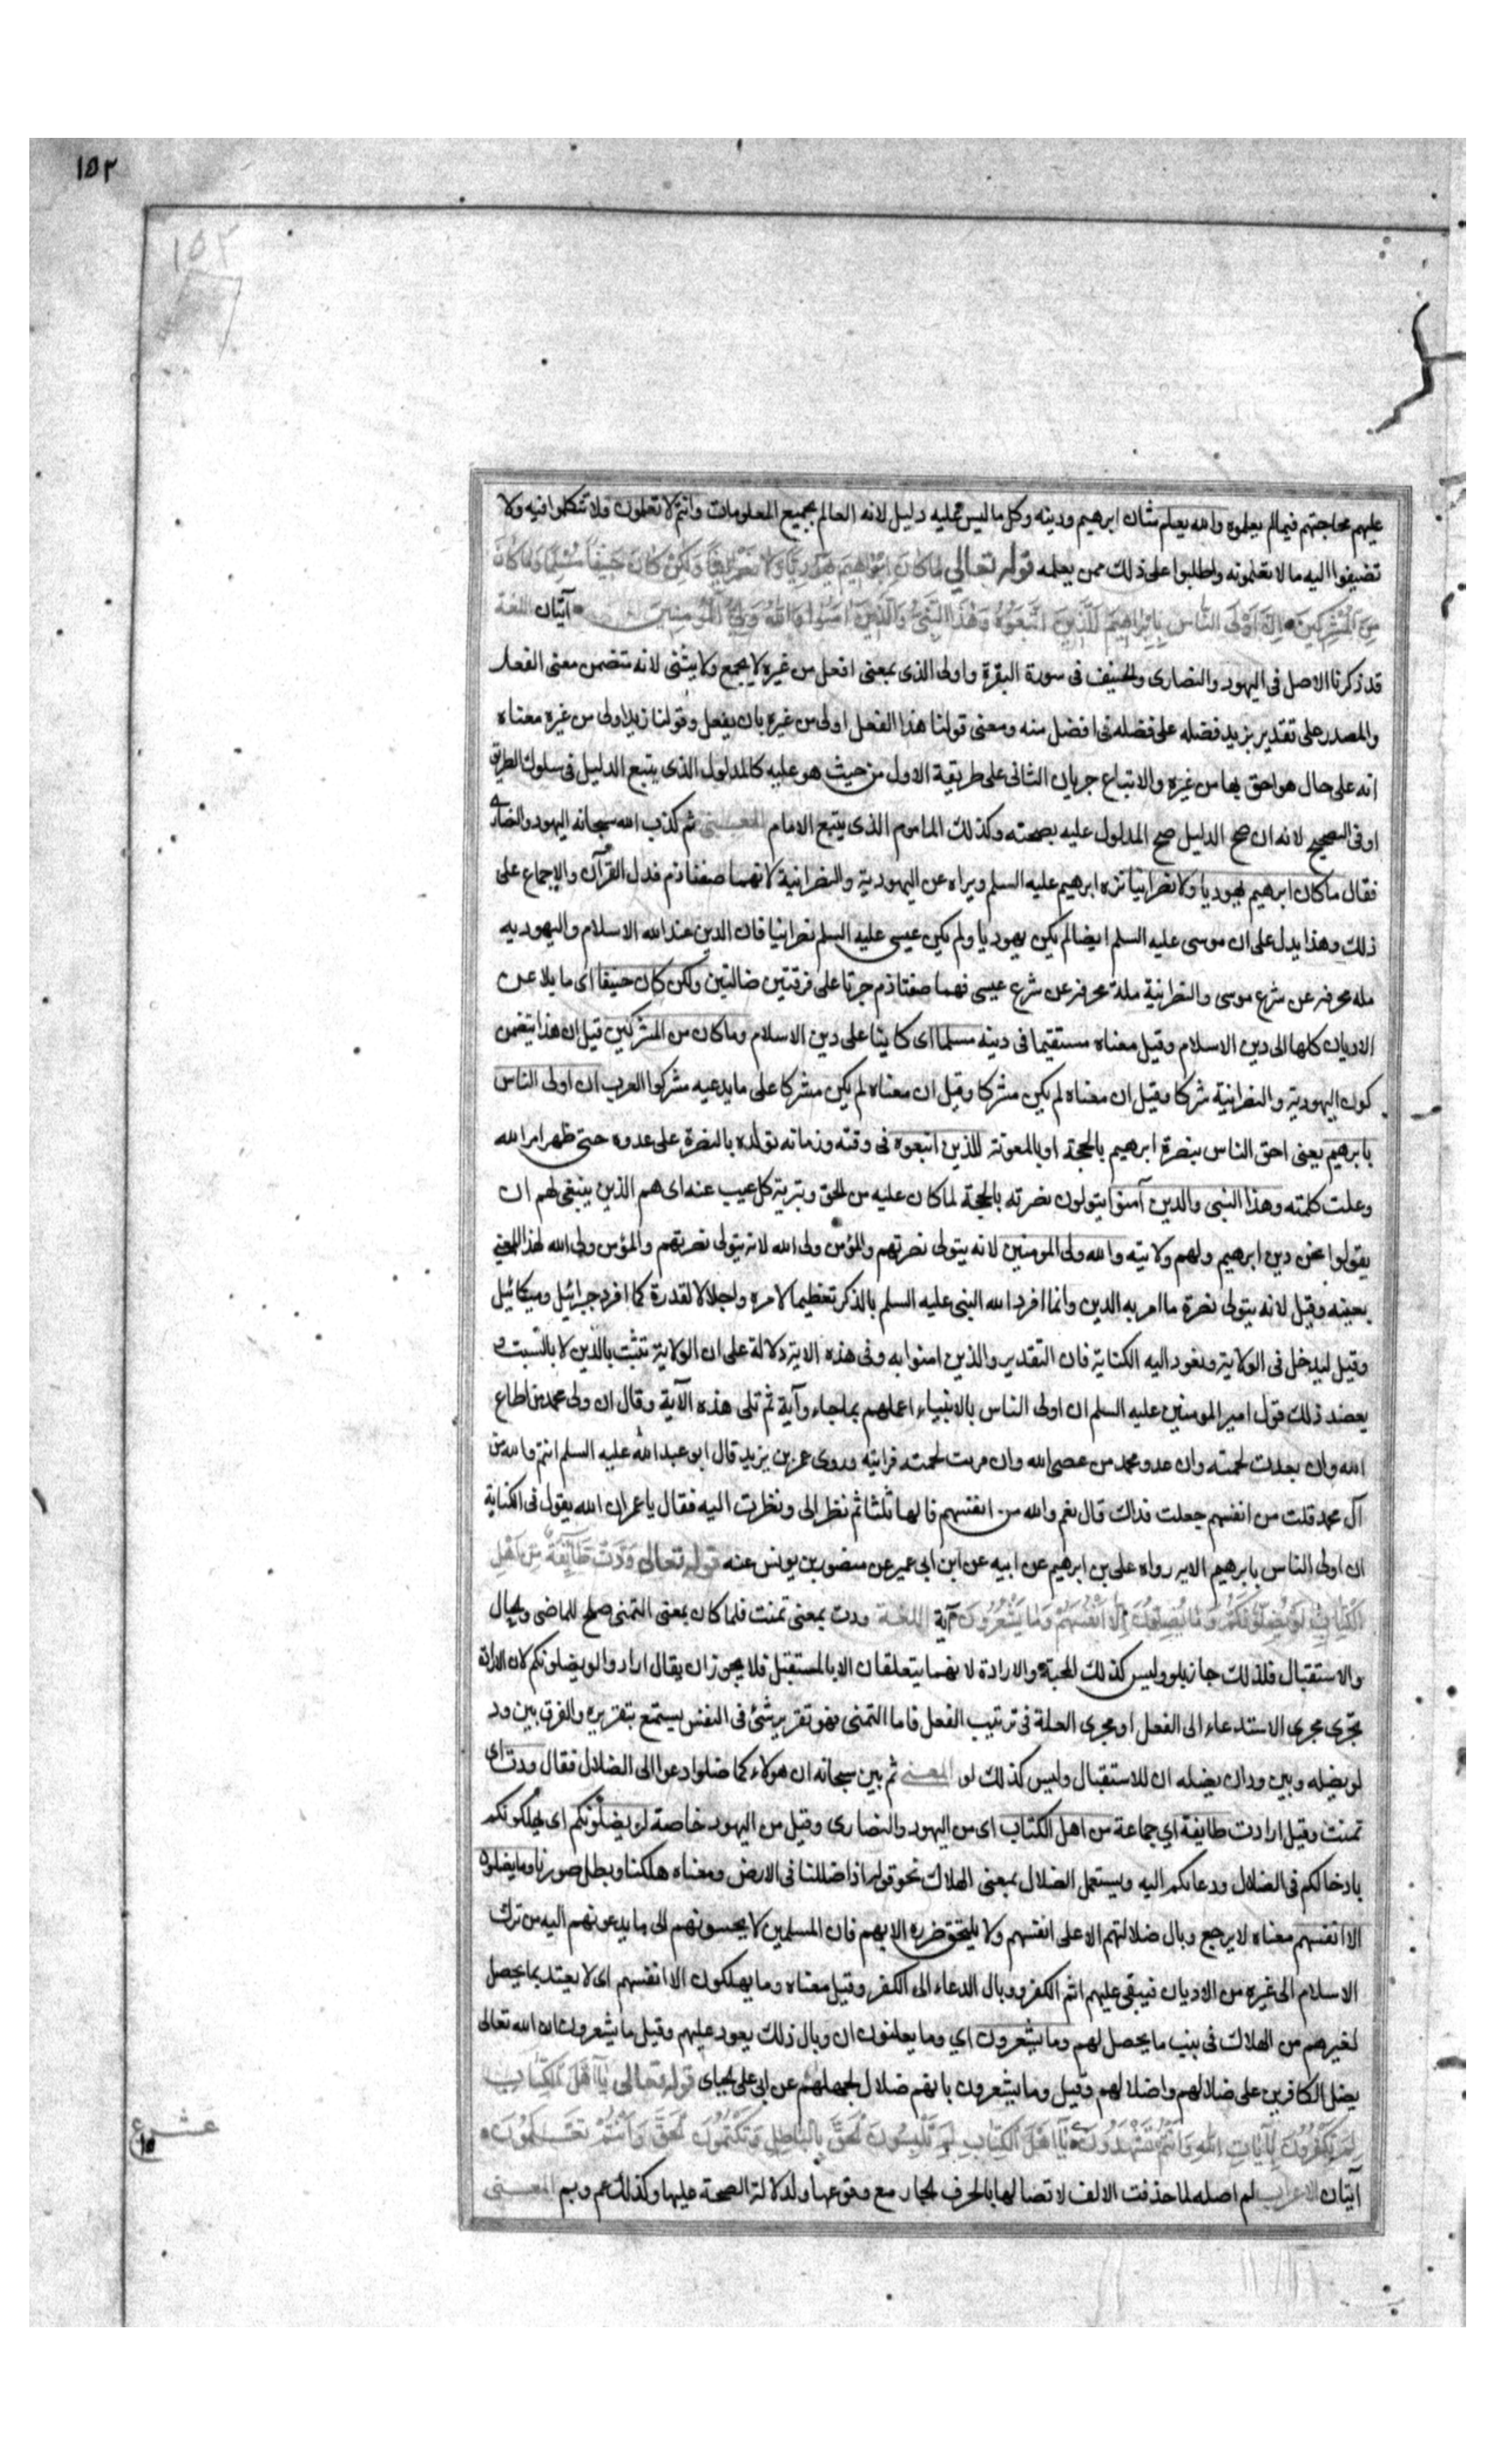 ١٥٢
١٥٢
عليهم محاجتهم فيما لم يعلموه والله يعلم شان ابرهيم ودينه وكل ما ليس عليه دليل لانه العالم بجميع المعلومات وانتم لا تعلمون فلا تتكلموا فيه ولا
تضيفوا اليه ما لا تعلمونه واطلبوا علم ذلك ممن يعلمه قوله تعالى ما كان ابراهيم يهوديا ولا نصرانيا ولكن كان حنيفا مسلما وما كان
من المشركين ان اولى الناس بابراهيم للذين اتبعوه وهذا النبي والذين امنوا والله ولي المؤمنين آيتان اللغة
قد ذكرنا الاصل فى اليهود والنصارى والحنيف فى سورة البقرة واولى الذى بمعنى افعل من غيره لا يجمع ولا يثنى لانه تتضمن معنى الفعل
والمصدر على تقدير يزيد فضله على فضله فى افضل منه ومعنى قولنا هذا الفعل اولى من غيره بان يفعل وقولنا زيد اولى من غيره معناه
انه على حال هو احق بها من غيره والاتباع جريان الثانى على طريقة الاول من حيث هو عليه كالمدلول الذى يتبع الدليل فى سلوك الطريق
او فى التصحيح لانه ان صح الدليل صح المدلول عليه بصحته وكذلك الماموم الذى يتبع الامام المعنى ثم كذب الله سبحانه اليهود والنصارى
فقال ما كان ابرهيم يهوديا ولا نصرانيا نزه ابرهيم عليه السلم وبراه عن اليهودية والنصرانية لانهما صفتا ذم قد دل القرآن والاجماع على
ذلك وهذا يدل على ان موسى عليه السلم ايضا لم يكن يهوديا ولم يكن عيسى عليه السلم نصرانيا فان الدين عند الله الاسلام واليهودية
ملة محرفة عن شرع موسى والنصرانية ملة محرفة عن شرع عيسى فهما صفتا ذم جرتا على فرقتين ضالتين ولكن كان حنيفا اى مايلا عن
الاديان كلها الى دين الاسلام وقيل معناه مستقيما فى دينه مسلما اى كاينا على دين الاسلام وما كان من المشركين قيل ان هذا يتضمن
كون اليهودية والنصرانية شركا وقيل ان معناه لم يكن مشركا وقيل ان معناه لم يكن مشركا على ما يدعيه مشركوا العرب ان اولى الناس
بابرهيم يعنى احق الناس بنصرة ابرهيم بالحجة او بالمعونة للذين اتبعوه فى وقته وزمانه بالنصرة على عدوه حتى ظهر امر الله
وعلت كلمته وهذا النبى والذين آمنوا يتولون نصرته بالحجة لما كان عليه من الحق وتبرية كل عيب عنه اى هم الذين ينبغى لهم ان
يقولوا نحن دين ابرهيم ولهم ولايته والله ولى المومنين لانه يتولى نصرتهم والمؤمن ولى الله لانه يتولى نصرتهم والمؤمن ولى الله لهذا المعنى
بعينه وقيل لانه يتولى نصرة ما امر به الدين وانما افرد الله النبى عليه السلم بالذكر تعظيما لامره واجلالا لقدرة كما افرد جبرائيل وميكائيل
وقيل ليدخل فى الولاية وتعود اليه الكناية فان التقدير والذين امنوا به وفى هذه الاية دلالة على ان الولاية تثبت بالدين لا بالنسب و
يعضد ذلك قول امير المومنين عليه السلم ان اولى الناس بالانبياء اعملهم بما جاءوا به ثم تلى هذه الآية وقال ان ولى محمد من اطاع
الله وان بعدت لحمته وان عدو محمد من عصى الله وان قربت لحمته قرابته وروى عمر بن يزيد قال ابو عبد الله عليه السلم انتم والله من
آل محمد قلت من انفسهم جعلت فداك قال نعم والله من انفسهم قالها ثلثا ثم نظر الى ونظرت اليه فقال يا عمر ان الله يقول فى الكتابه
ان اولى الناس بابرهيم الاية رواه على بن ابرهيم عن ابيه عن ابن ابى عمير عن منصور بن يونس عنه قوله تعالى ودت طايفة من اهل
الكتاب لو يضلونكم وما يضلون الا انفسهم وما يشعرون آية اللغة ودت بمعنى تمنت فلما كان بمعنى التمنى صلح للماضى والحال
والاستقبال فلذلك جاز بلو وليس كذلك المحبة والارادة لانهما يتعلقان الا بالمستقبل فلا يجوز ان يقال ارادوا لو يضلونكم لان الارادة
تجرى مجرى الاستدعاء الى الفعل او مجرى العلة فى ترتيب الفعل فاما التمنى فهو تقرير شئ فى النفس يستمتع بتقريره والفرق بين ود
لو يضله وبين ود ان يضله ان للاستقبال وليس كذلك لو المعنى ثم بين سبحانه ان هولاء كما ضلوا دعوا الى الضلال فقال ودت اى
تمنت وقيل ارادت طايفة اي جماعة من اهل الكتاب اى من اليهود والنصارى وقيل من اليهود خاصة لو يضلونكم اى يهلكونكم
بادخالكم فى الضلال ودعائكم اليه ويستعمل الضلال بمعنى الهلاك نحو قوله اذا ضللنا فى الارض ومعناه هلكنا وبطل صورنا وما يضلون
الا انفسهم معناه لا يرجع وبال ضلالتهم الا على انفسهم ولا يلحق ضرره الا بهم فان المسلمين لا يجيبونهم الى ما يدعونهم اليه من ترك
الاسلام الى غيره من الاديان فيبقى عليهم اثم الكفر ووبال الدعاء الى الكفر وقيل معناه وما يهلكون الا انفسهم اى لا يعتد بما يحصل
لغيرهم من الهلاك فى جنب ما يحصل لهم وما يشعرون اي وما يعلمون ان وبال ذلك يعود عليهم وقيل ما يشعرون ان الله تعالى
يضل الكافرين على ضلالهم واضلالهم وقيل وما يشعرون بانهم ضلال لجهلهم عن ابى على الجباى قوله تعالى يا اهل الكتاب
لم تكفرون بآيات الله وانتم تشهدون يا اهل الكتاب لم تلبسون الحق بالباطل وتكتمون الحق وانتم تعلمون
آيتان الاعراب لم اصله لما حذفت الالف لاتصالها بالحرف الجار مع وقوعها ولدلالة الصحة عليها وكذلك عم وبم المعنى
عشر ع
١٥